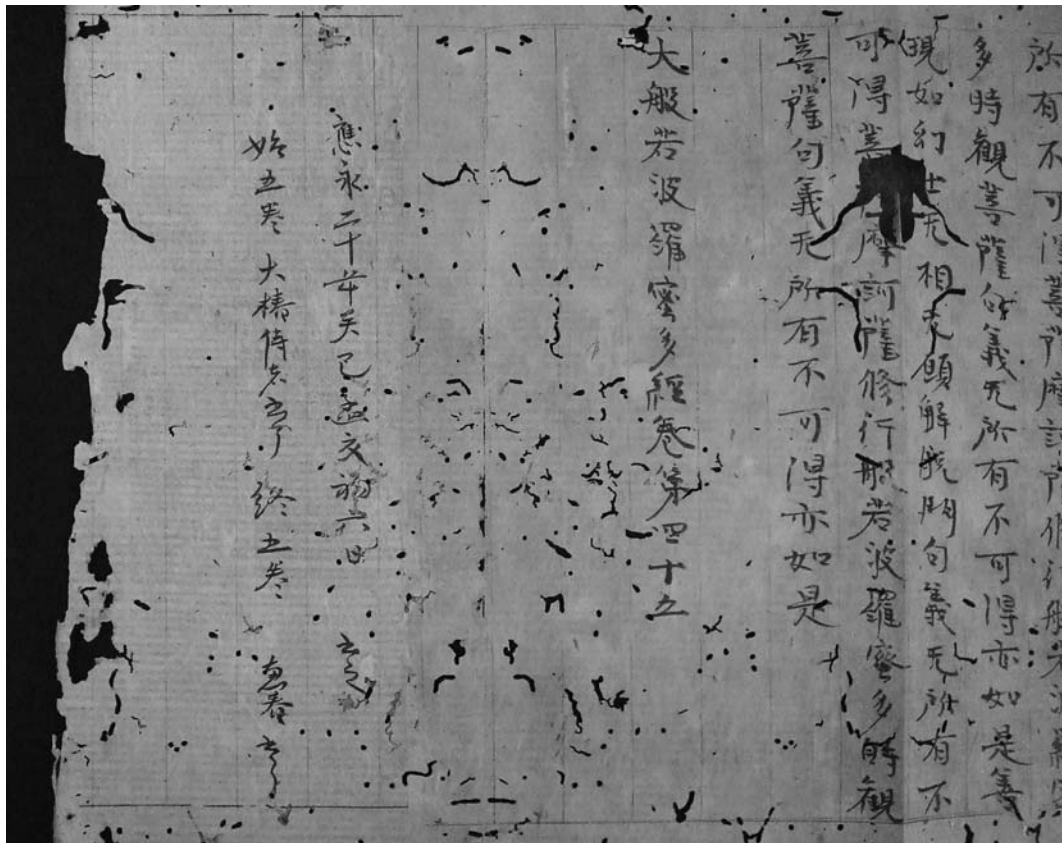 所有不可得菩薩摩訶薩修行般若波羅蜜
多時觀菩薩句義无所有不可得亦如是善
現如幻士无相无願解脫門句義无所有不
可得菩摩訶薩修行般若波羅蜜多時觀
菩薩句義无所有不可得亦如是
大般若波羅蜜多經卷第四十五
應永二十年癸巳孟夏初六日
始五卷 大椿侍者書了 終五卷 惠春書了